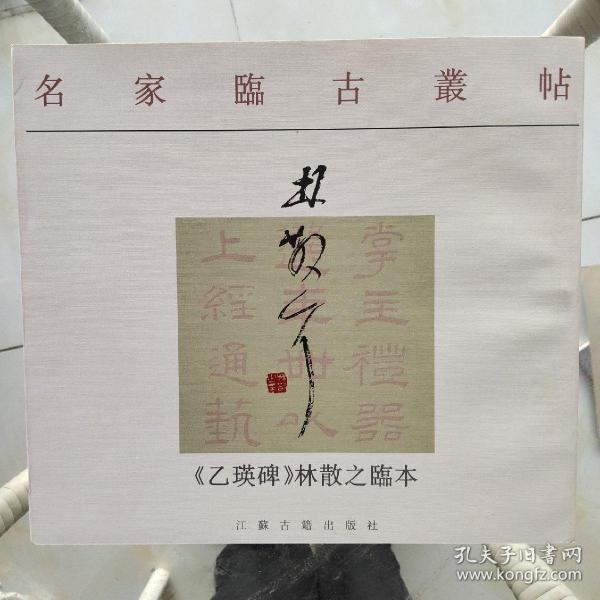 名家臨古叢帖
林散之
掌主禮器
上經通藝
《乙瑛碑》林散之臨本
江蘇古籍出版社
孔夫子旧书网
www.kongfz.com